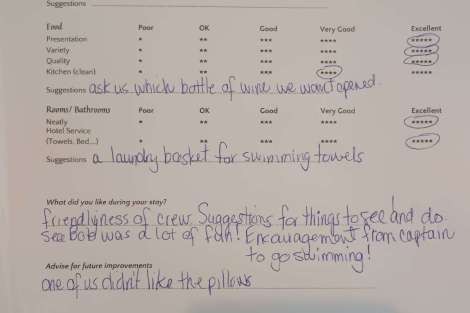 Suggestions
Food Poor OK Good Very Good Excellent
Presentation * ** *** **** *****
Variety * ** *** **** *****
Quality * ** *** **** *****
Kitchen (clean) * ** *** **** *****
Suggestions ask us which bottle of wine we want opened.
Rooms/ Bathrooms Poor OK Good Very Good Excellent
Neatly * ** *** **** *****
Hotel Service
(Towels, Bed...) * ** *** **** *****
Suggestions a laundry basket for swimming towels
What did you like during your stay?
friendlyness of crew. Suggestions for things to see and do.
Sea Bob was a lot of fun! Encouragement from captain
to go swimming!
Advise for future improvements
one of us didn't like the pillows